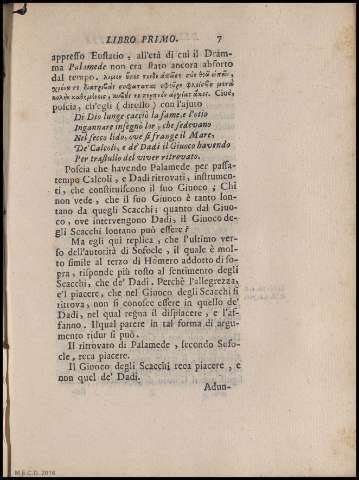 LIBRO PRIMO. 7
appresso Eustatio, all'età di cui il Dram-
ma Palamede non era stato ancora absorto
dal tempo.
Cioè,
poscia, ch'egli (dirello) con l'ajuto
Di Dio lunge cacciò la fame, e l'otio
Ingannare insegnò lor, che sedevano
Nel secco lido, ove si frange il Mare,
De' Calcoli, e de' Dadi il Giuoco havendo
Per trastullo del viver ritrovato.
Poscia che havendo Palamede per passa-
tempo Calcoli, e Dadi ritrovati, instrumen-
ti, che constituiscono il suo Giuoco; Chi
non vede, che il suo Giuoco è tanto lon-
tano da quegli Scacchi; quanto dal Giuo-
co, ove intervengono Dadi, il Giuoco de-
gli Scacchi lontano può essere?
Ma egli qui replica, che l'ultimo ver-
so dell'autorità di Sofocle, il quale è mol-
to simile al terzo di Homero addotto di so-
pra, risponde più tosto al sentimento degli
Scacchi, che de' Dadi. Perchè l'allegrezza,
e'l piacere, che nel Giuoco degli Scacchi si
ritrova, non si conosce essere in quello de'
Dadi, nel qual regna il displacere, e l'af-
fanno. Ilqual parere in tal forma di argu-
mento ridur si può.
Il ritrovato di Palamede, secondo Sofo-
cle, reca piacere.
Il Giuoco degli Scacchi reca piacere, e
non quel de' Dadi.
Adun-
M.E.C.D. 2016